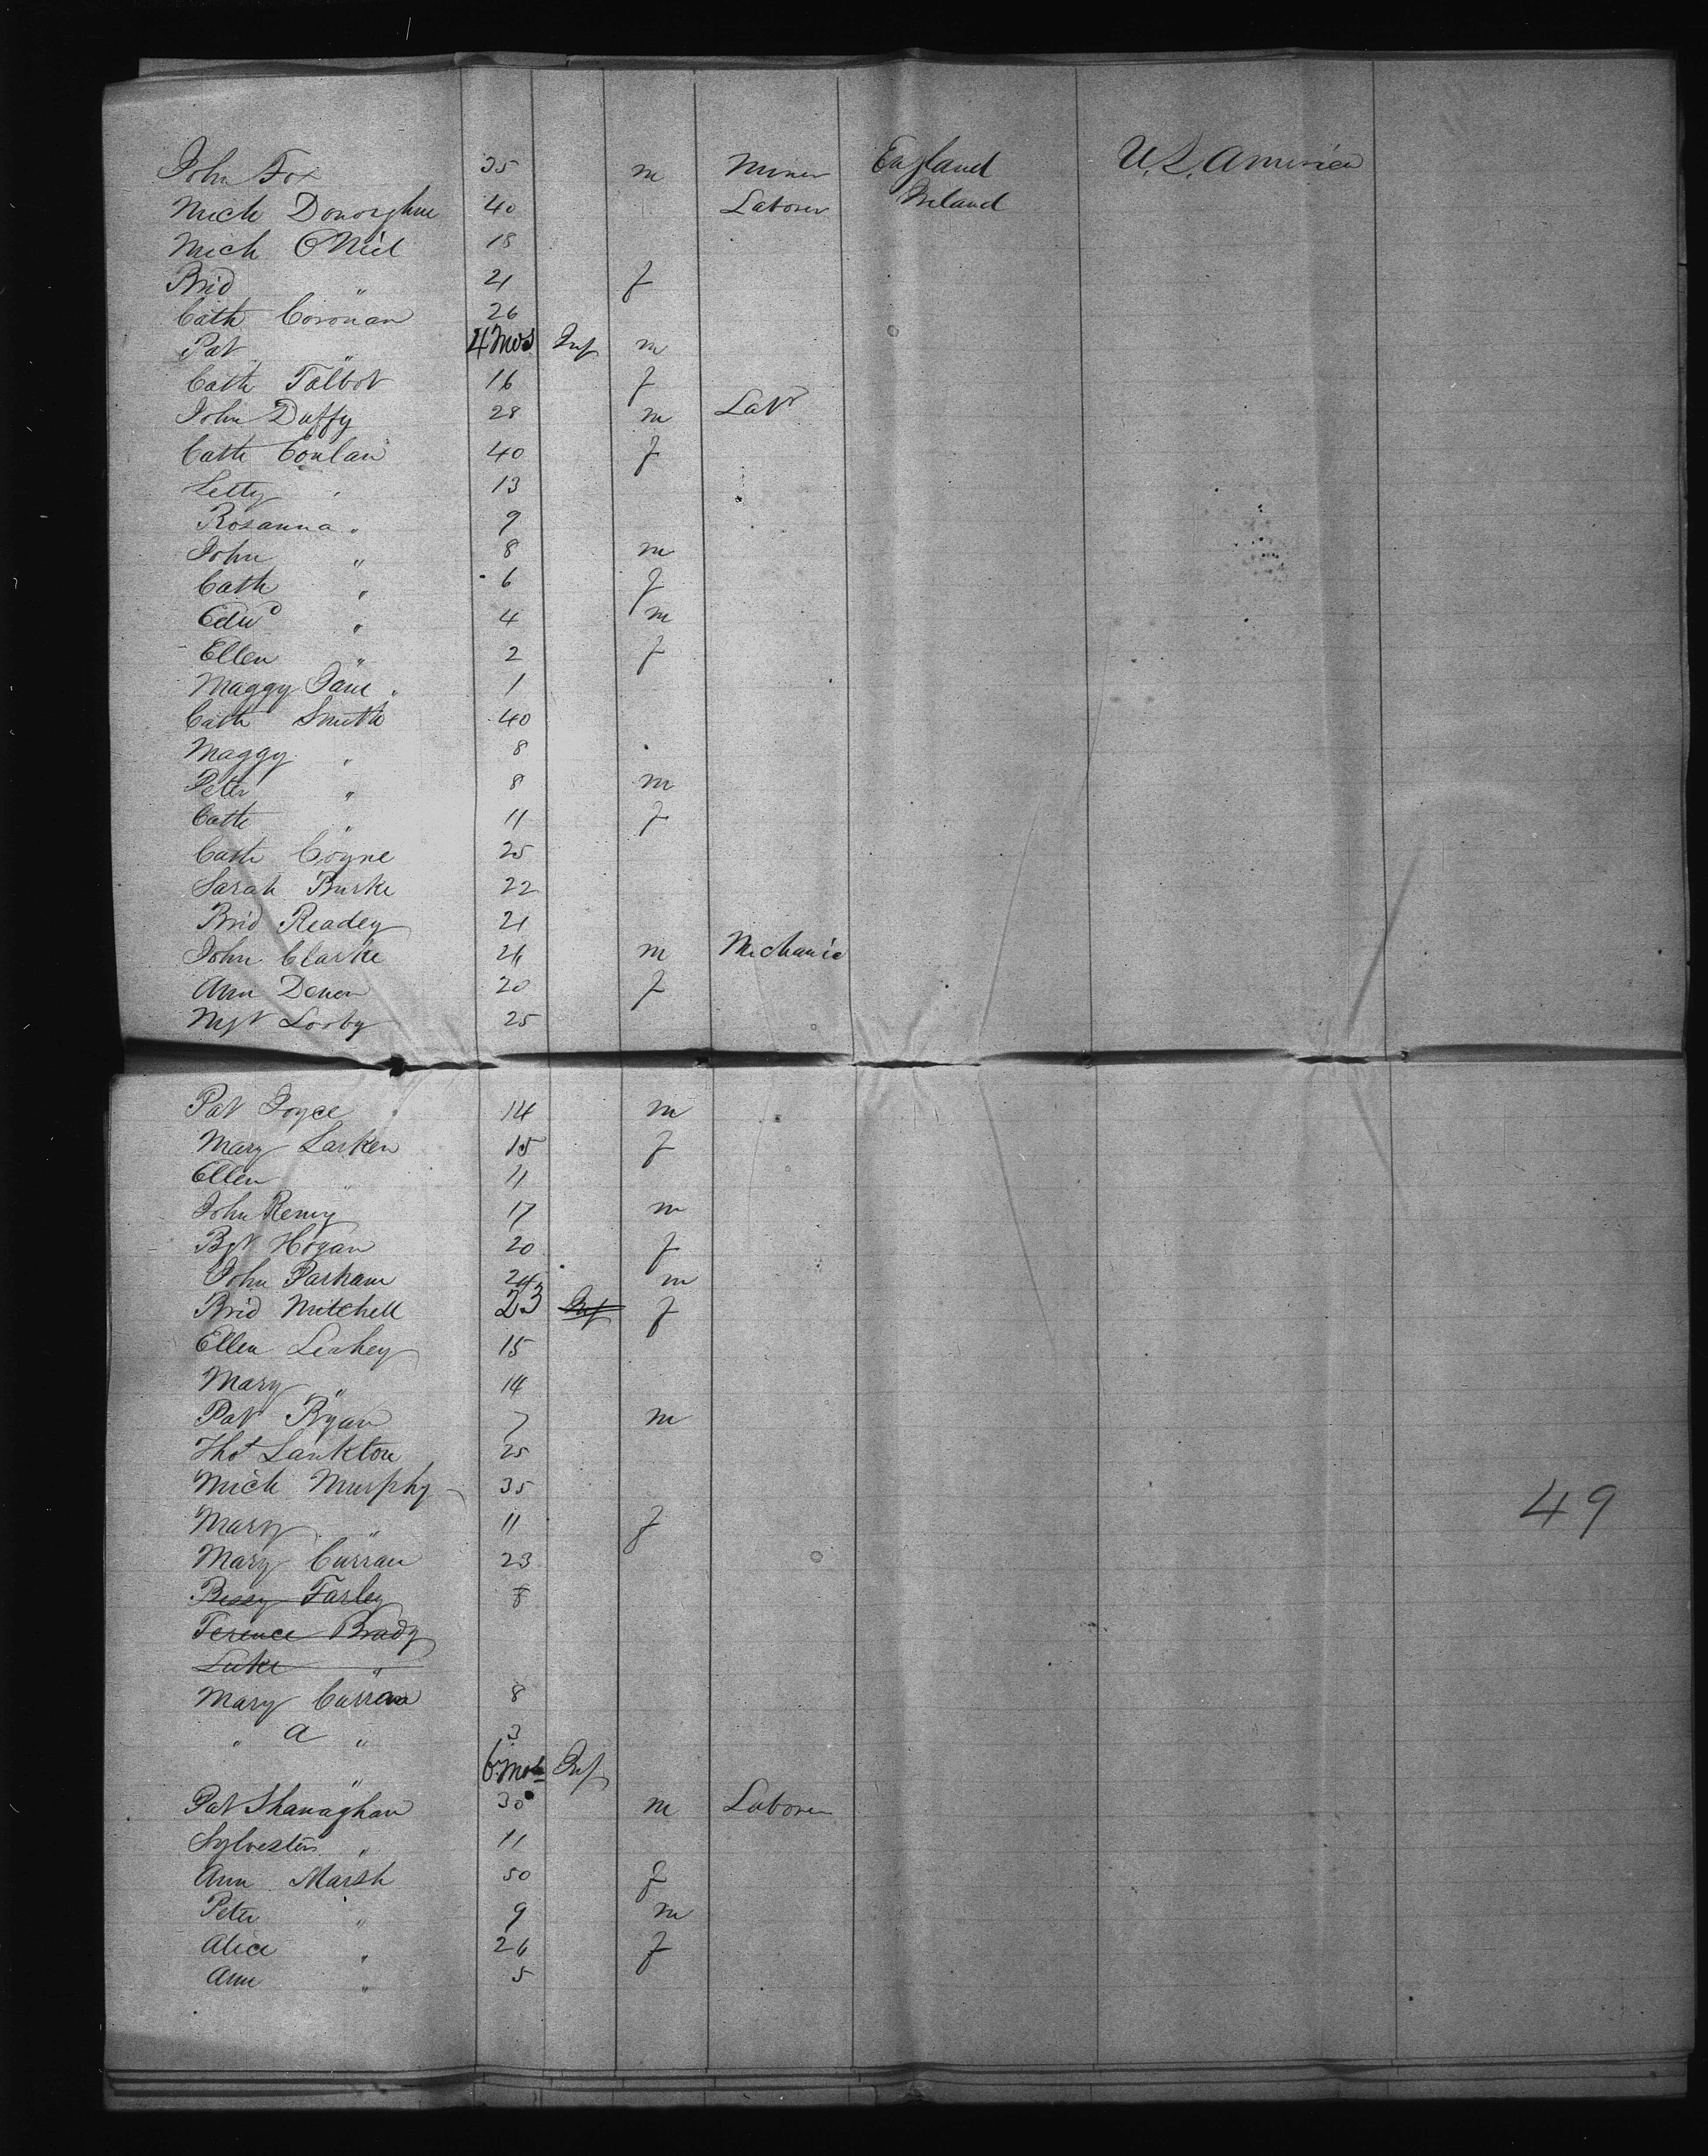 John Fox 35 m Miner England U.S. America
Mich Donoghue 40 Laborer Ireland
Mich O'Niel 18
Brid " 21 f
Cath Coronan 26
Pat " 4 Mos Inf m
Cath Talbot 16 f
John Duffy 28 m Labr
Cath Conlan 40 f
Letty " 13
Rosanna " 9
John " 8 m
Cath " 6 f
Edwd " 4 m
Ellen " 2 f
Maggy Jane " 1
Cath Smith 40
Maggy " 8
Peter " 8 m
Cath " 11 f
Cath Coyne 25
Sarah Burke 22
Brid Readey 21
John Clarke 26 m Mechanic
Ann Dener 20 f
Mgt Looby 25
Pat Joyce 14 m
Mary Larken 15 f
Ellen " 11
John Remy 17 m
Bgt Hogan 20 f
John Parham 24 m
Brid Mitchell 23 Inf f
Ellen Leahey 15
Mary " 14
Pat Ryan 7 m
Thos Lankton 25
Mich Murphy 35
Mary " 11 f
49
Mary Curran 23
Bessy Farley 8
Terence Brady
Luke "
Mary Curran 8
" A " 3
" 6 Mos Inf
Pat Shanaghan 30 m Laborer
Sylvester " 11
Ann Marsh 50 f
Peter " 9 m
Alice " 26 f
Ann " 5